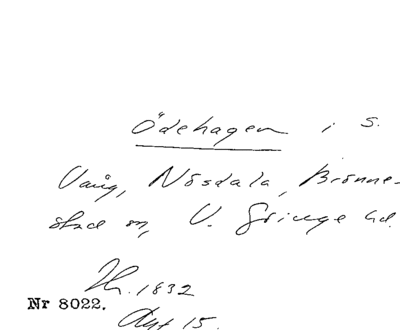 Ödehagen i S.
Vång, Nösdala, Brönne-
stad sn, V. Göinge hd.
Jb. 1832
Nr 8022.
Avst 15.